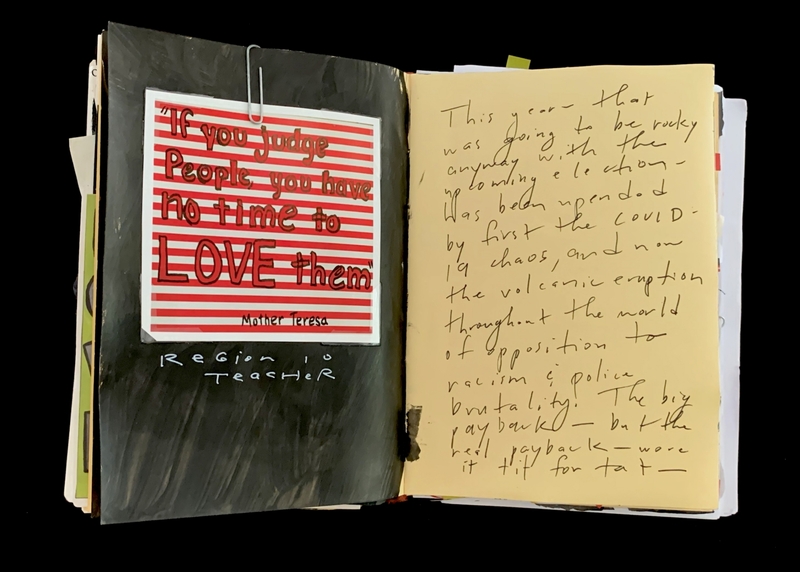 "If you judge
People, you have
no time to
LOVE them"
Mother Teresa
Region 10
Teacher
This year – that
was going to be rocky
anyway with the
upcoming election –
has been upended
by first the COVID-
19 chaos, and now
the volcanic eruption
throughout the world
of opposition to
racism & police
brutality. The big
payback – but the
real payback – were
it tit for tat –